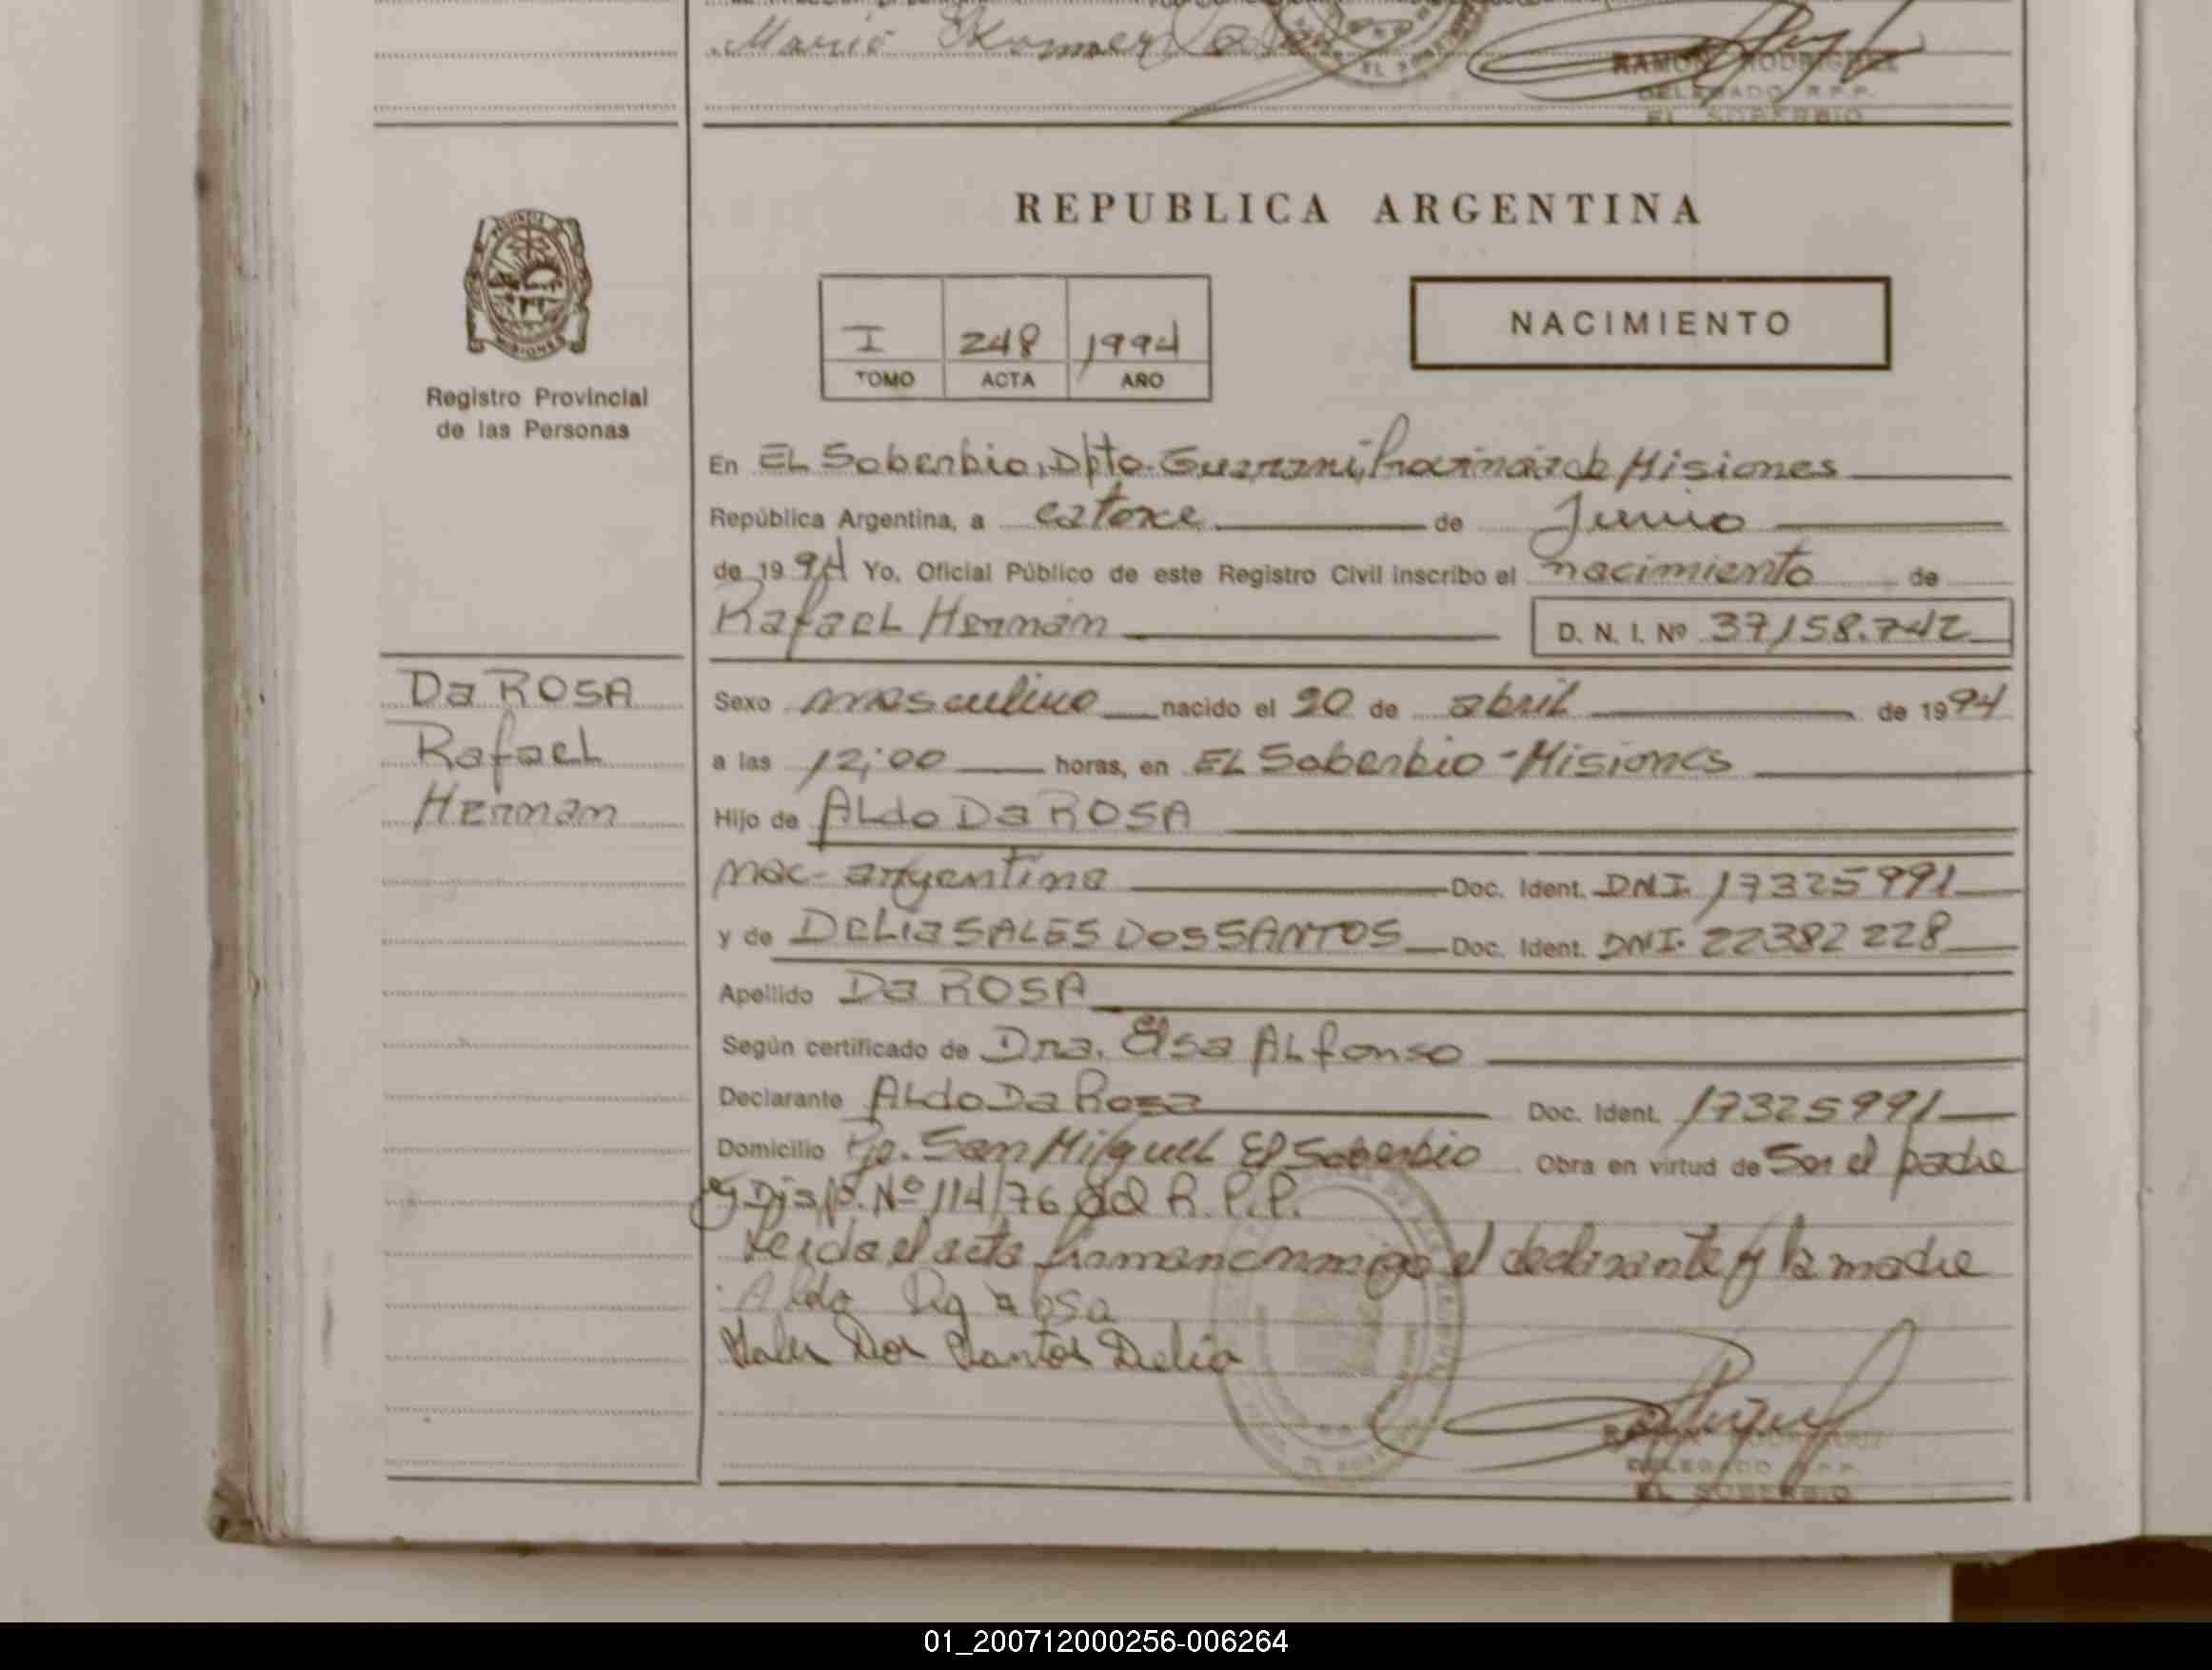 Mario
RAMON RODRIGUEZ
DELEGADO R.P.P.
EL SOBERBIO
REPUBLICA ARGENTINA
MISIONES
Registro Provincial
de las Personas
I 248 1994
TOMO ACTA AÑO
NACIMIENTO
En EL Soberbio, Dpto. Guarani, Provincia de Misiones
República Argentina, a catorce de Junio
de 1994 Yo, Oficial Público de este Registro Civil inscribo el nacimiento de
Rafael Hernan D. N. I. Nº 37158.742
Da ROSA
Rafael
Hernan
Sexo masculino nacido el 20 de abril de 1994
a las 12;00 horas, en EL Soberbio - Misiones
Hijo de ALdo Da ROSA
nac- argentina Doc. Ident. DNI. 17325991
y de DeLia SALES DOS SANTOS Doc. Ident. DNI. 22382228
Apellido Da ROSA
Según certificado de Dra. Elsa ALfonso
Declarante ALdo Da Rosa Doc. Ident. 17325991
Domicilio Pje. San Miguel El Soberbio Obra en virtud de Ser el padre
y Disp. Nº 114/76 del R.P.P.
Leida el acta firman conmigo el declarante y la madre
Aldo Da rosa
Sales Dos Santos Delia
RAMON RODRIGUEZ
DELEGADO R.P.P.
EL SOBERBIO
01_200712000256-006264